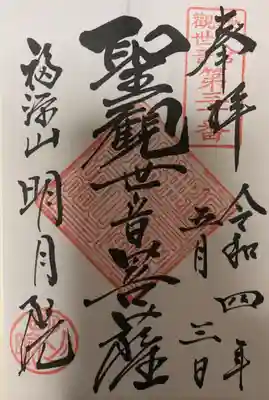 奉拝
令和四年
五月三日
聖觀世音菩薩
福源山明月院
觀世音第三番